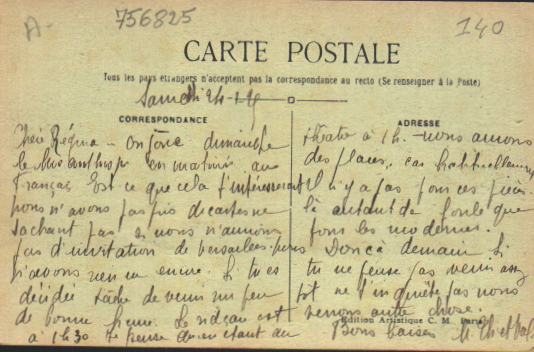 A-
756825
140
CARTE POSTALE
Tous les pays étrangers n'acceptent pas la correspondance au recto (Se renseigner à la Poste)
Samedi 24-1-
CORRESPONDANCE
Chère Régina - On joue dimanche
le Misanthrope en matinée au
Français Est ce que cela t'intéresserait
nous n'avons pas pris de cartes ne
sachant pas si nous n'aurions
pas d'invitation de Versailles. nous
n'avons rien eu encore. Si tu es
décidée tâche de venir un peu
de bonne heure. Le rideau est
à 1h30 Je pense qu'en étant au
ADRESSE
théâtre à 1h. nous aurons
des places, car habituellement
il n'y a pas pour ces pièces
là autant de foule que
pour les modernes.
Donc à demain. Si
tu ne penses pas venir
tôt ne t'inquiète pas nous
verrons autre chose.
Edition Artistique C. M. Paris
Bons baisers